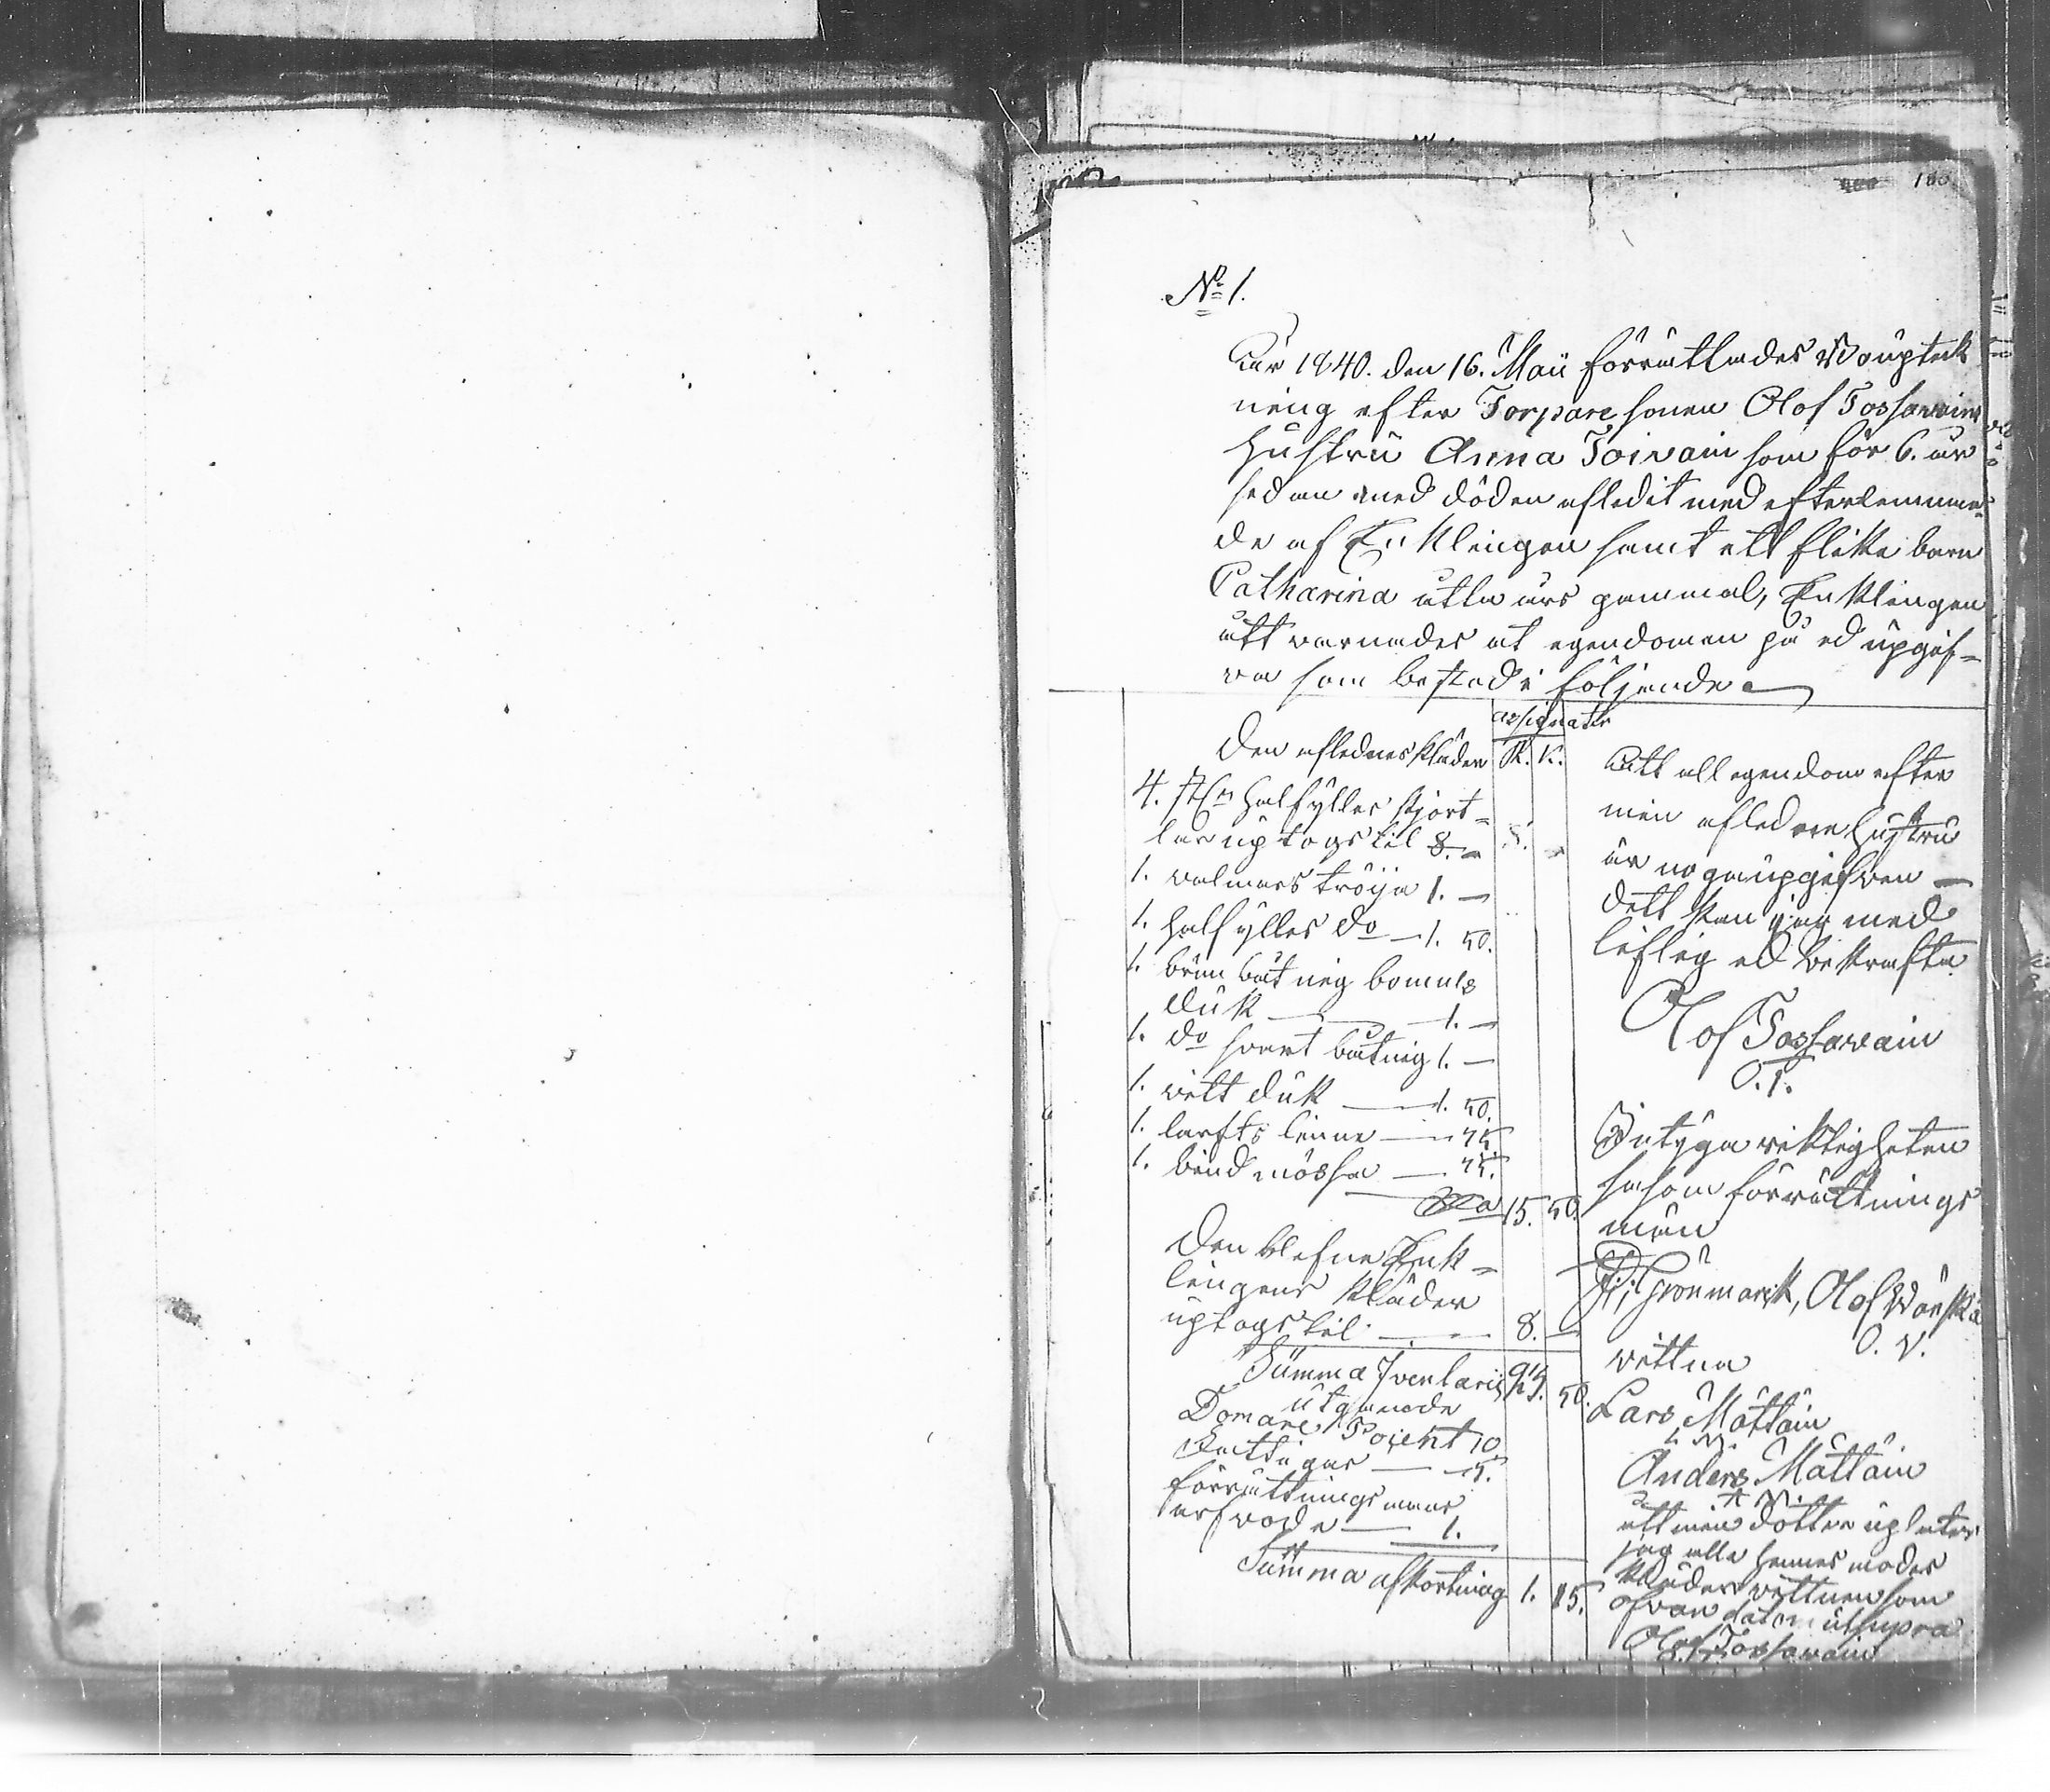 180
№ 1.
Åhr 1840. den 16. Maii förrättades Boupteck
ning efter Torpare sonen Olof Tossawains
hustru Anna Toivain som för 6. år
sedan med döden afledit med efterlemnan-
de af Enklingen samt ett flika barn
Catharina åtta års gammal, Enklingen
åtvarnades at egendomen på ed upgif-
va som bestod i följande
assignater
R. K.
Den aflednes kläder
4. st:n halfylles skjort-
lar uptogs til 8. -
8. -
1. valmars tröija 1. -
1. halfylles do - 1. 50.
1. brun botnig bomuls
duk - 1. -
1. do svart botnig 1. -
1. vitt duk - 1. 50.
1. larfts linne - 75
1. bind mössa - 75.
15. 50.
Den blefne Enk-
lingens kläder
uptogs til - 8. -
Summa Iventarie 23. 50.
utgående
Domare Pocent 10
Fattigas - 5.
förrättningsmans
arfvode - 1.
Summa afkortning 1. 15.
Att all egendom efter
min aflednne hustru
är noga upgifven -
dett kan jag med
liflig ed bekrafta
Olof Tossawain
O. T.
Intyga riktigheten
såsom förrättnings
män
Grönmarck, Olof Vänskä
O. V.
vittna
Lars Mättäin
L M
Anders Mättäin
A M.
att min dotter uplåter
jag alla hennes moders
kläder vittnen som
ofvan datm utsupra
Olof Tossawain
O. T.